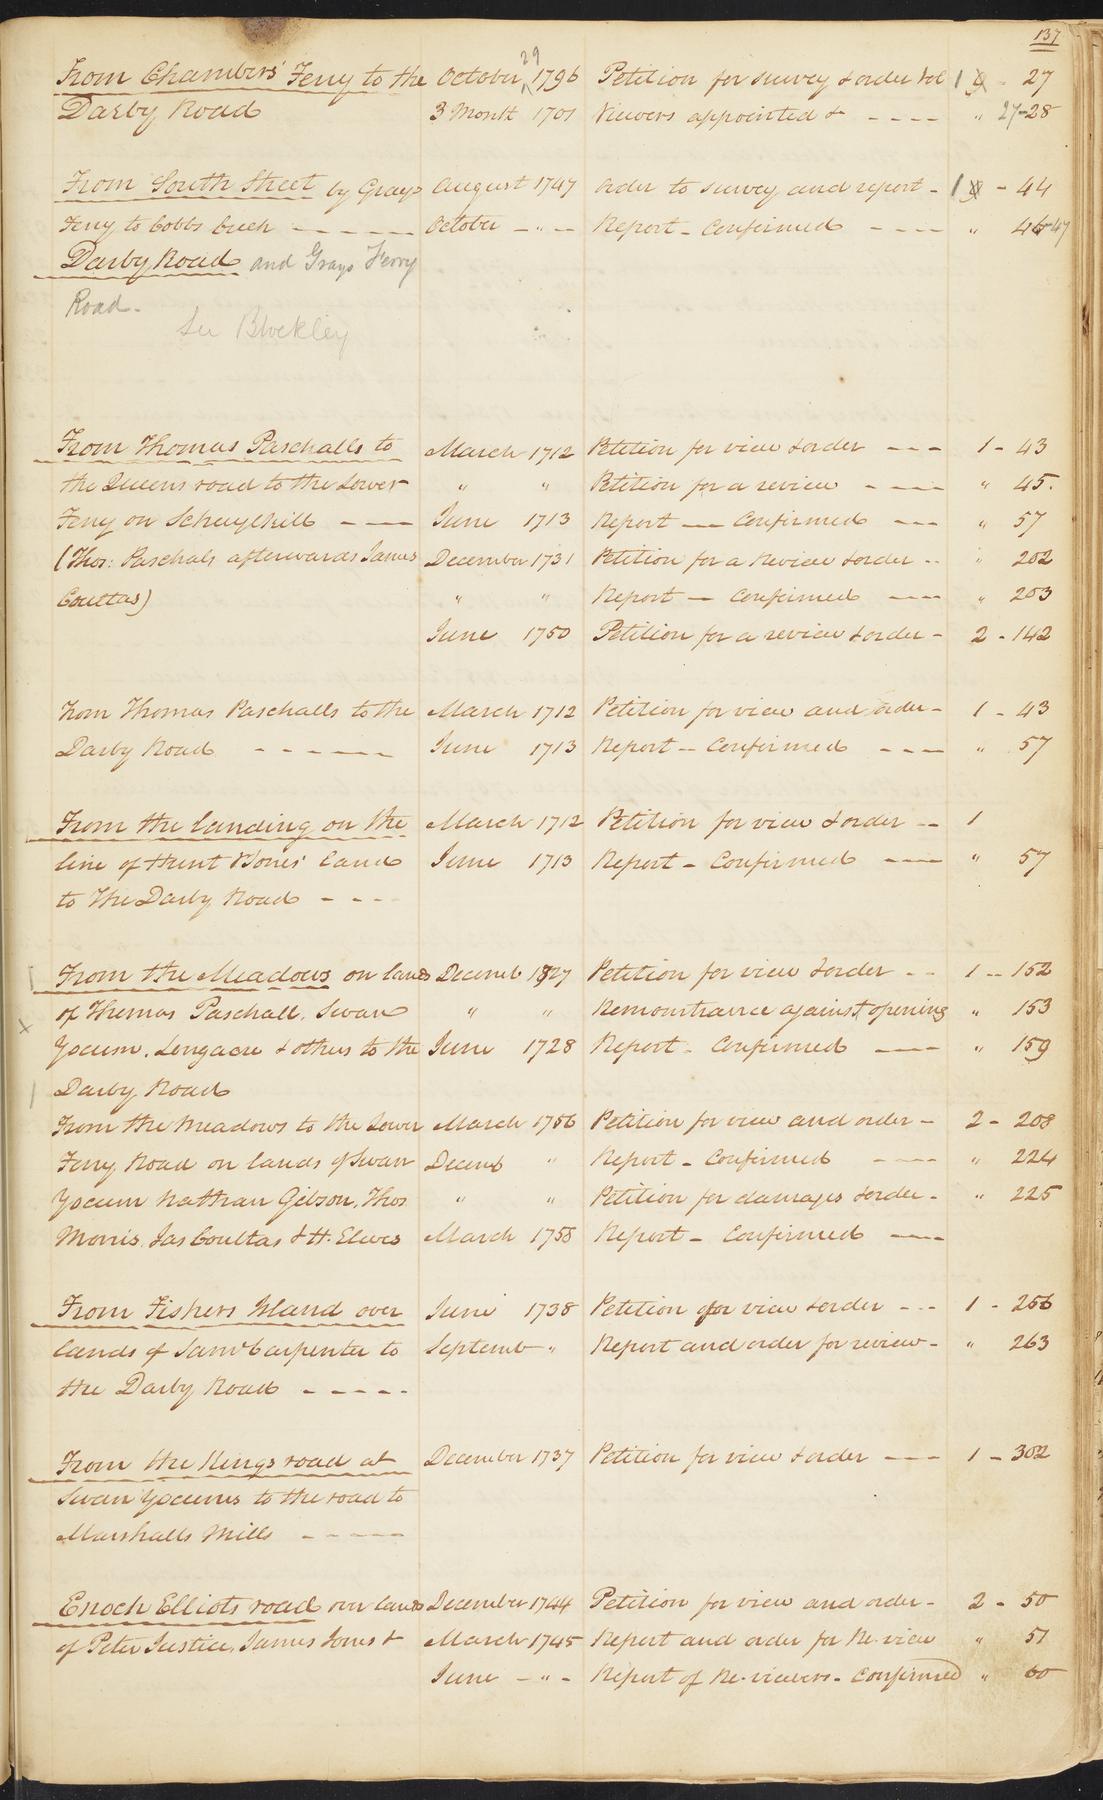 137
From Chambers' Ferry to the October 29 1796 Petition for survey & order Vol 1 - 27
Darby Road 3 Month 1701 Viewers appointed & - - - - " 27-28
From South Street by Grays August 1747 Order to survey and report - 1 - 44
Ferry to Cobbs Creek - - - - - - October - " - Report - Confirmed - - - - " 46-47
Darby Road and Grays Ferry
Road.
See Blockley
From Thomas Paschalls to March 1712 Petition for view & order - - - 1 - 43
the Queens road to the Lower " " Petition for a review - - - - " 45.
Ferry on Schuylkill - - - June 1713 Report - Confirmed - - - " 57
(Thos: Paschals afterwards James December 1731 Petition for a Review & order - - " 202
Coultas) " " Report - Confirmed - - - " 203
June 1750 Petition for a review & order - 2 - 142
From Thomas Paschalls to the March 1712 Petition for view and order - 1 - 43
Darby Road - - - - - - June 1713 Report - Confirmed - - - " 57
From the landing on the March 1712 Petition for view & order - - 1
line of Hunt & Jones' land June 1713 Report - Confirmed - - - " 57
to The Darby Road - - - -
From the Meadows on lands Decemb 1727 Petition for view & order - - 1 - - 152
of Thomas Paschall, Swan " " Remonstrance against opening " 153
Yocum, Longacre & others to the June 1728 Report - Confirmed - - - " 159
Darby Road
From the meadows to the Lower March 1756 Petition for view and order - 2 - 208
Ferry Road on lands of Swan Decemb " Report - Confirmed - - - - " 224
Yocum Nathan Gibson, Thos " " Petition for damages & order - " 225
Morris, Jas Coultas & H. Elwes March 1758 Report - Confirmed - - -
From Fishers Island over June 1738 Petition for view & order - - - 1 - 256
lands of Saml Carpenter to Septemb - " Report and order for review - " 263
the Darby Road - - - - -
From the Kings road at December 1737 Petition for view & order - - - 1 - 302
Swan Yocums to the road to
Marshalls Mills - - - - -
Enoch Elliots road over lands December 1744 Petition for view and order - 2 - 50
of Peter Justice, James Jones & March 1745 Report and order for Re-view " 51
June - " - Report of Re-viewers - Confirmed " 60